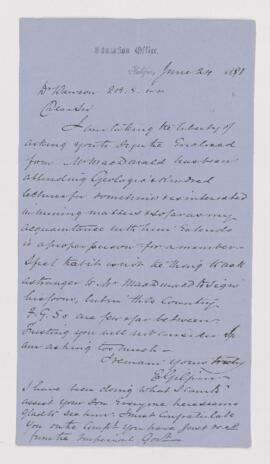 Education Office,
Halifax, June 24 1881
Dr Dawson
Dear Sir
I am taking the liberty of
asking you to sign the Enclosed
from Mr MacDonald has been
attending Geological & kindred
lectures for sometime & is interested
in mining matters & so far as my
acquaintance with him Extends
is a proper person for a member-
I feel that it is not the thing to ask
a stranger to Mr MacDonald to sign
his form, but in this Country
F.G.S. are few & far between.
Trusting you will not consider I
am asking too much-
I remain yours truly
E Gilpin
I have been doing what I can to
assist your Son Everyone here seems
glad to see him. I must Congratulate
you on the you have just
from the Imperial Govt.